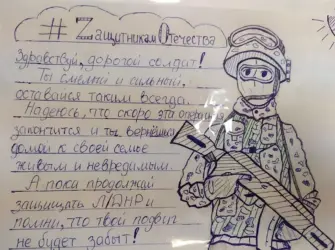 # ZащитникамОтечества
Здравствуй, дорогой солдат!
Ты смелый и сильный,
оставайся таким всегда.
Надеюсь, что скоро эта операция
закончится и ты вернёшься
домой к своей семье
живым и невредимым.
А пока продолжай
защищать Л/ДНР и
помни, что твой подвиг
не будет забыт!